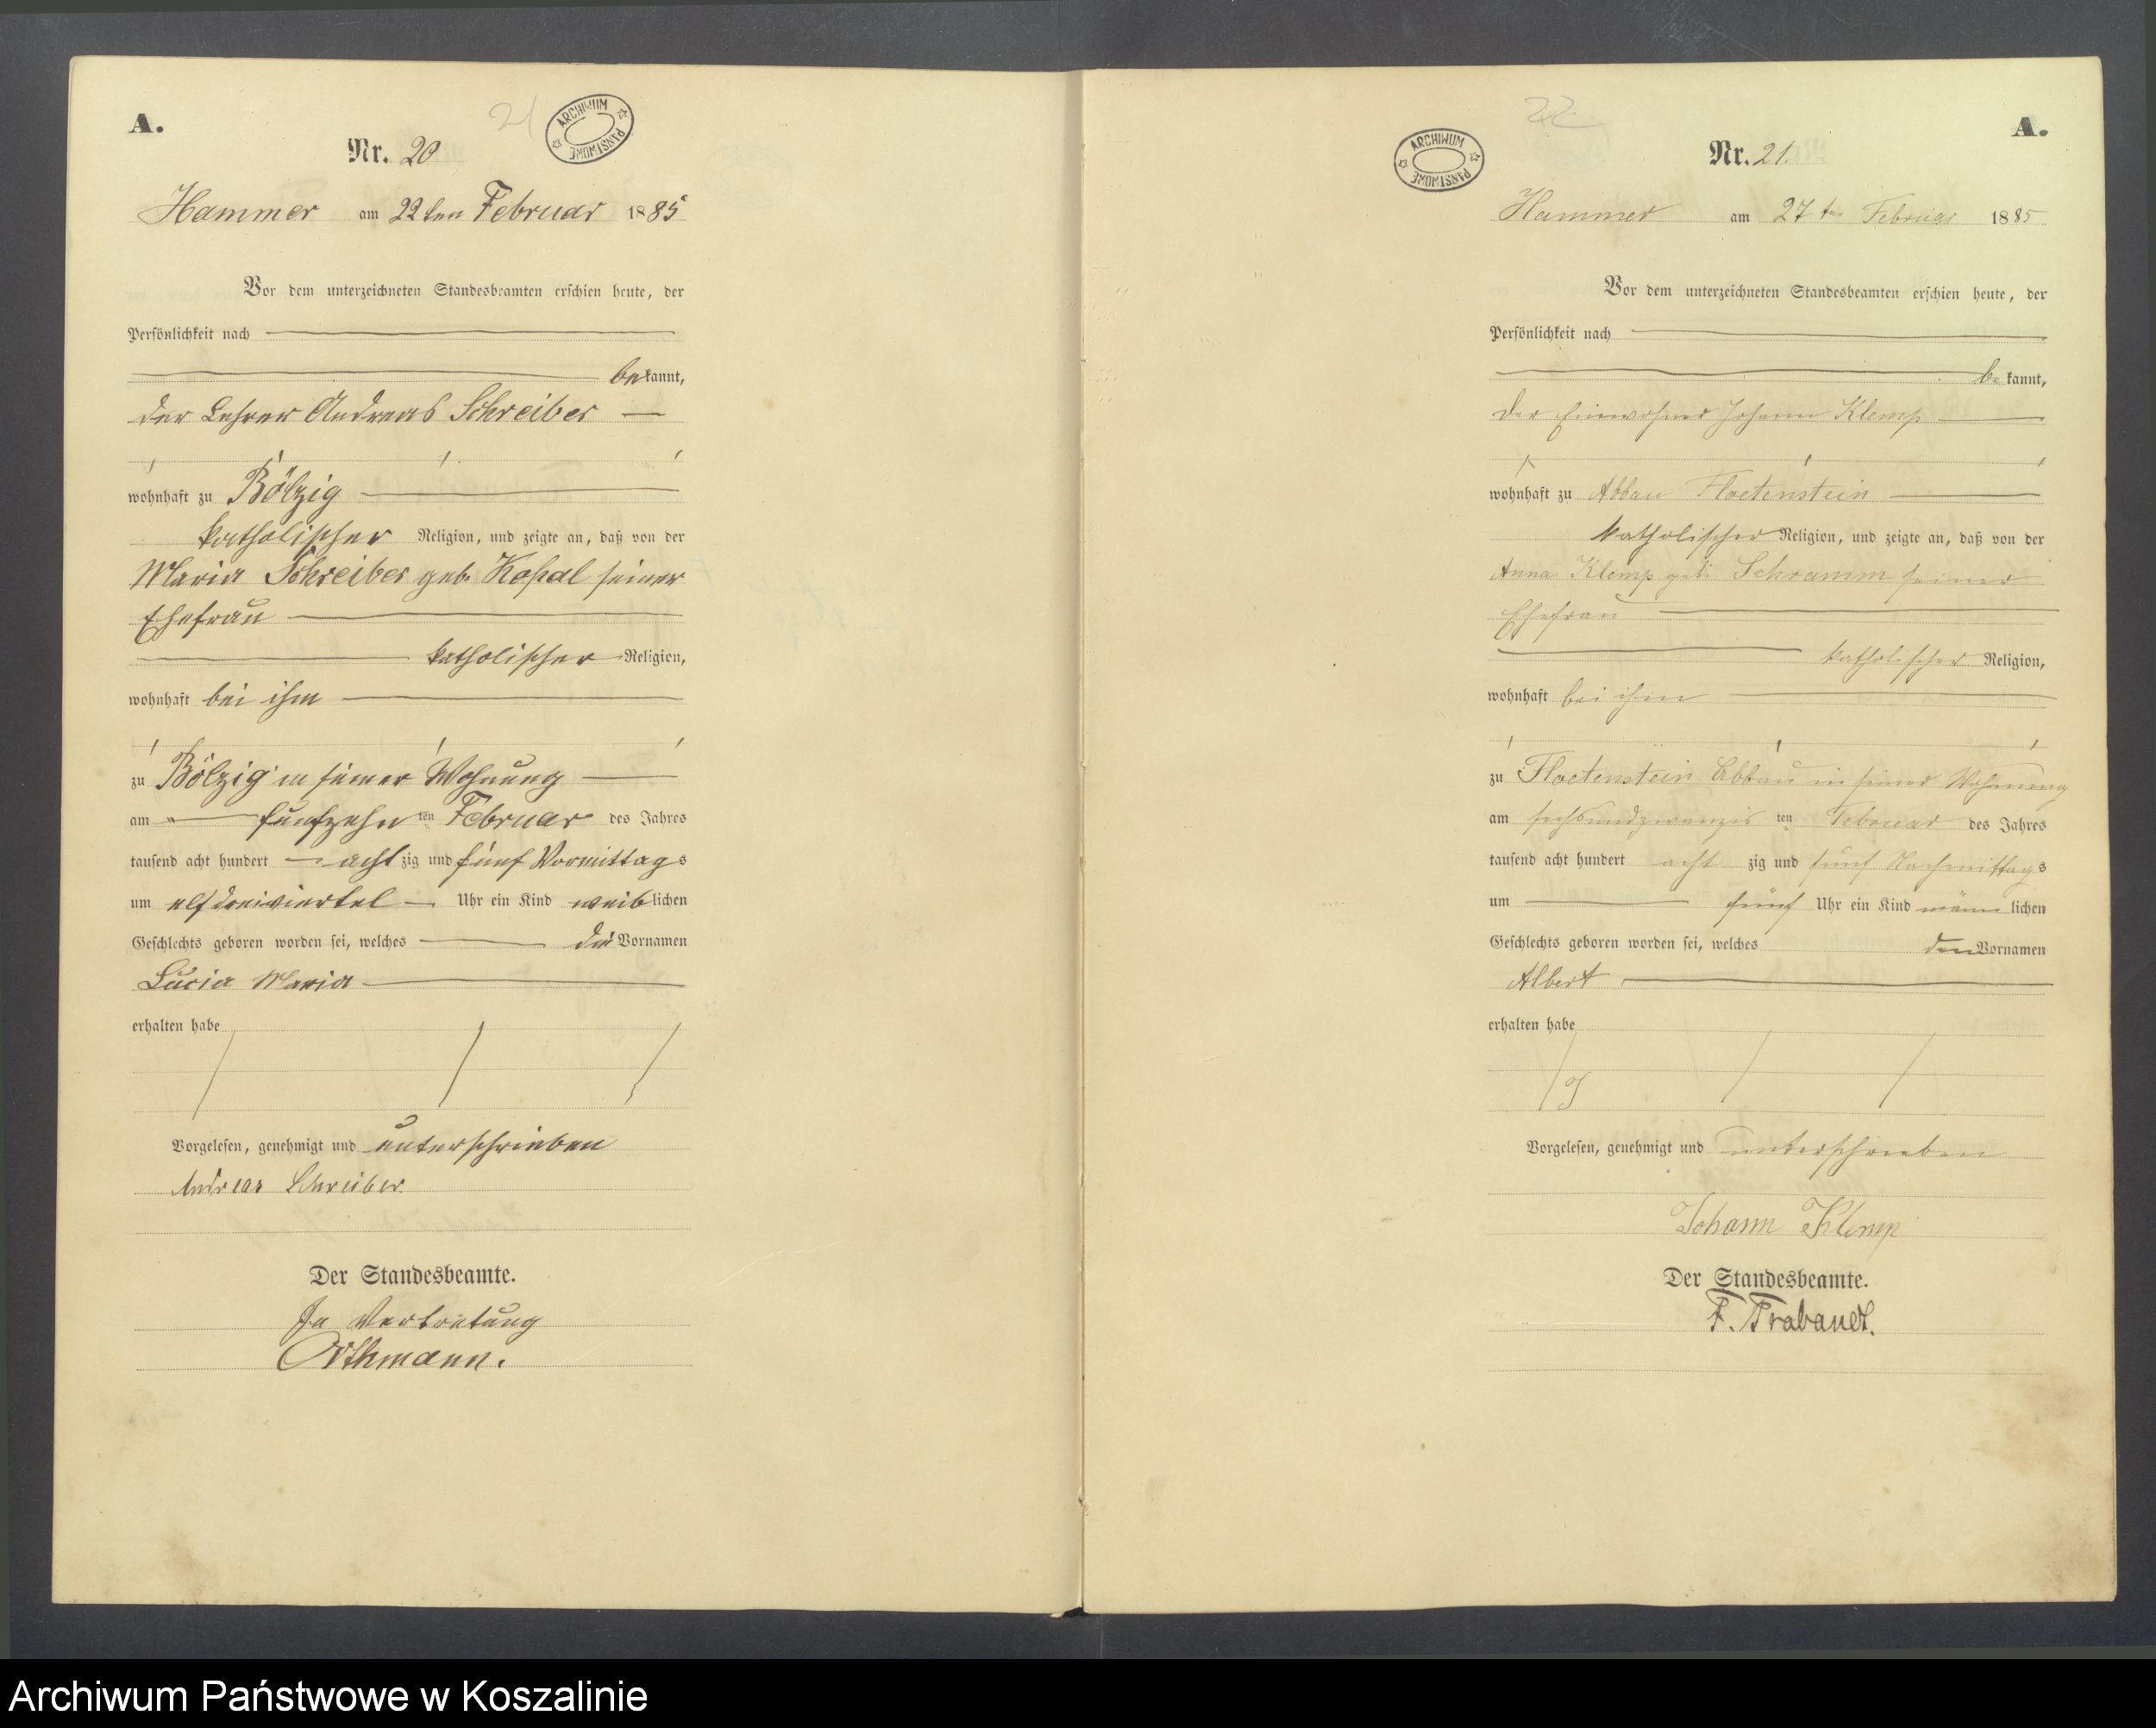 A.
21
ARCHIWUM PAŃSTWOWE
Nr. 20
Hammer am 22ten Februar 1885
Vor dem unterzeichneten Standesbeamten erschien heute, der
Persönlichkeit nach
bekannt,
der Lehrer Andreas Schreiber
wohnhaft zu Bölzig
katholischer Religion, und zeigte an, daß von der
Maria Schreiber geb. seiner
Ehefrau
katholischer Religion,
wohnhaft bei ihm
zu Bölzig in seiner Wohnung
am fünfzehnten Februar des Jahres
tausend acht hundert achtzig und fünf Vormittags
um elfdreiviertel Uhr ein Kind weiblichen
Geschlechts geboren worden sei, welches die Vornamen
Lucia Maria
erhalten habe
Vorgelesen, genehmigt und unterschrieben
Andreas Schreiber
Der Standesbeamte.
In Vertretung
Orthmann.
A.
22
ARCHIWUM PAŃSTWOWE
Nr. 21.
Hammer am 27ten Februar 1885
Vor dem unterzeichneten Standesbeamten erschien heute, der
Persönlichkeit nach
bekannt,
der Einwohner Johann Klemp
wohnhaft zu Abbau Floetenstein
katholischer Religion, und zeigte an, daß von der
Anna Klemp geb. Schramm seiner
Ehefrau
katholischer Religion,
wohnhaft bei ihm
zu Floetenstein Abbau in seiner Wohnung
am sechsundzwanzigsten Februar des Jahres
tausend acht hundert achtzig und fünf Nachmittags
um fünf Uhr ein Kind männlichen
Geschlechts geboren worden sei, welches den Vornamen
Albert
erhalten habe
Vorgelesen, genehmigt und unterschrieben
Johann Klemp
Der Standesbeamte.
F. Trabandt.
Archiwum Państwowe w Koszalinie